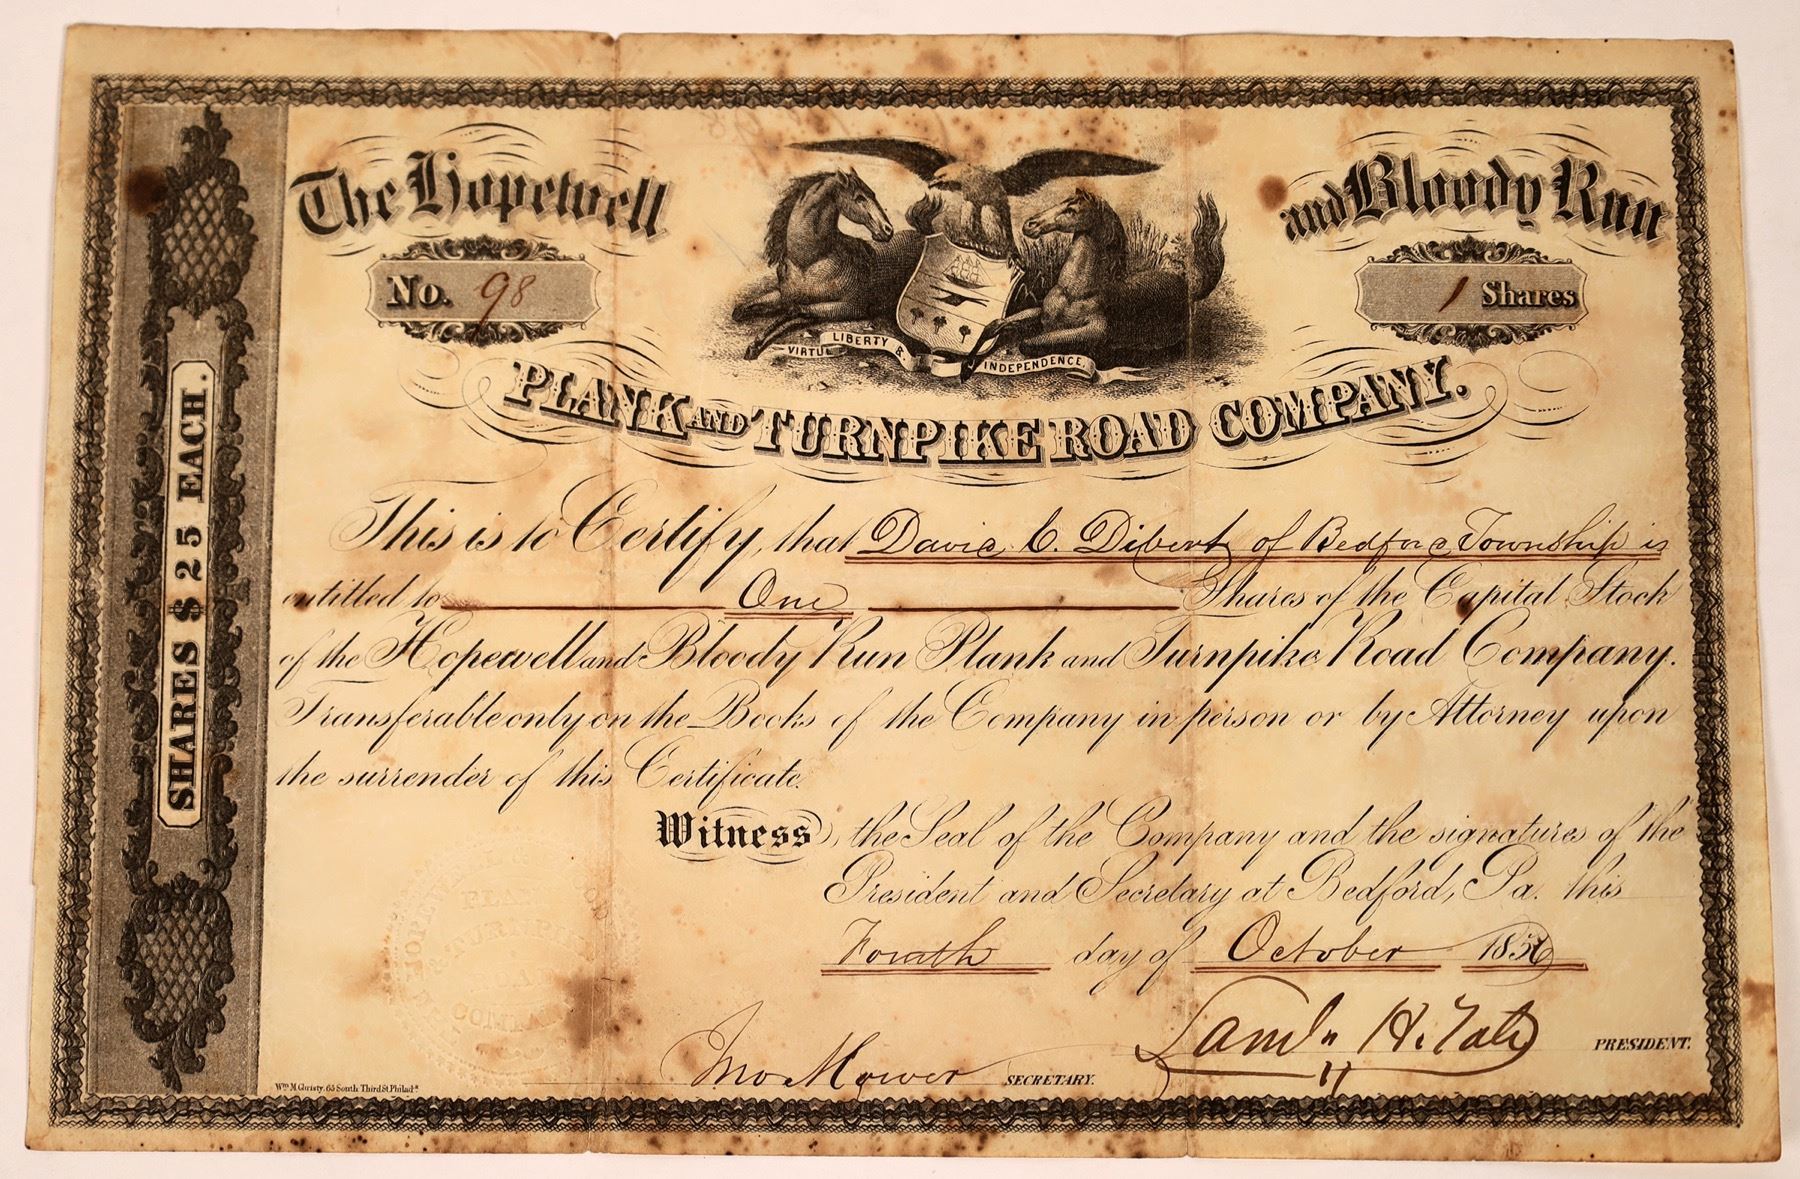 The Hopewell and Bloody Run
No. 98
1 Shares
VIRTUE LIBERTY & INDEPENDENCE
PLANK AND TURNPIKE ROAD COMPANY.
SHARES $25 EACH.
This is to Certify, that David C. Dibert of Bedford Township is
entitled to One Shares of the Capital Stock
of the Hopewell and Bloody Run Plank and Turnpike Road Company.
Transferable only on the Books of the Company in person or by Attorney upon
the surrender of this Certificate.
Witness, the Seal of the Company and the signatures of the
President and Secretary at Bedford, Pa. this
Fourth day of October 1856
Jno Mower SECRETARY.
H. Tate PRESIDENT.
Wm. M. Christy. 65 South Third St Philada
COMPANY